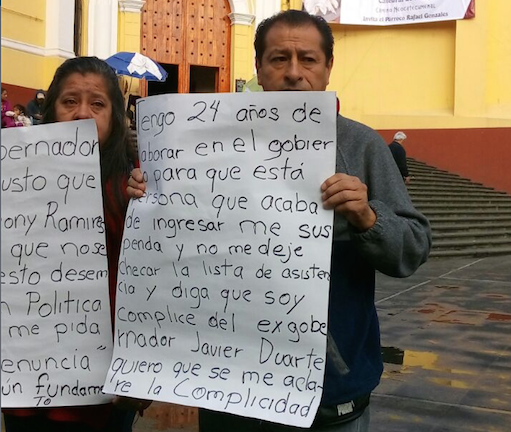 Rafael González
bernador
usto que
ony Ramirez
que nose
esto desem
n Politica
me pida
enuncia "
ún fundame
To
engo 24 años de
aborar en el gobier
o para que está
ersona que acaba
de ingresar me sus
penda y no me deje
checar la lista de asisten
cia y diga que soy
complice del exgobe
rnador Javier Duarte
quiero que se me acla
re la Complicidad